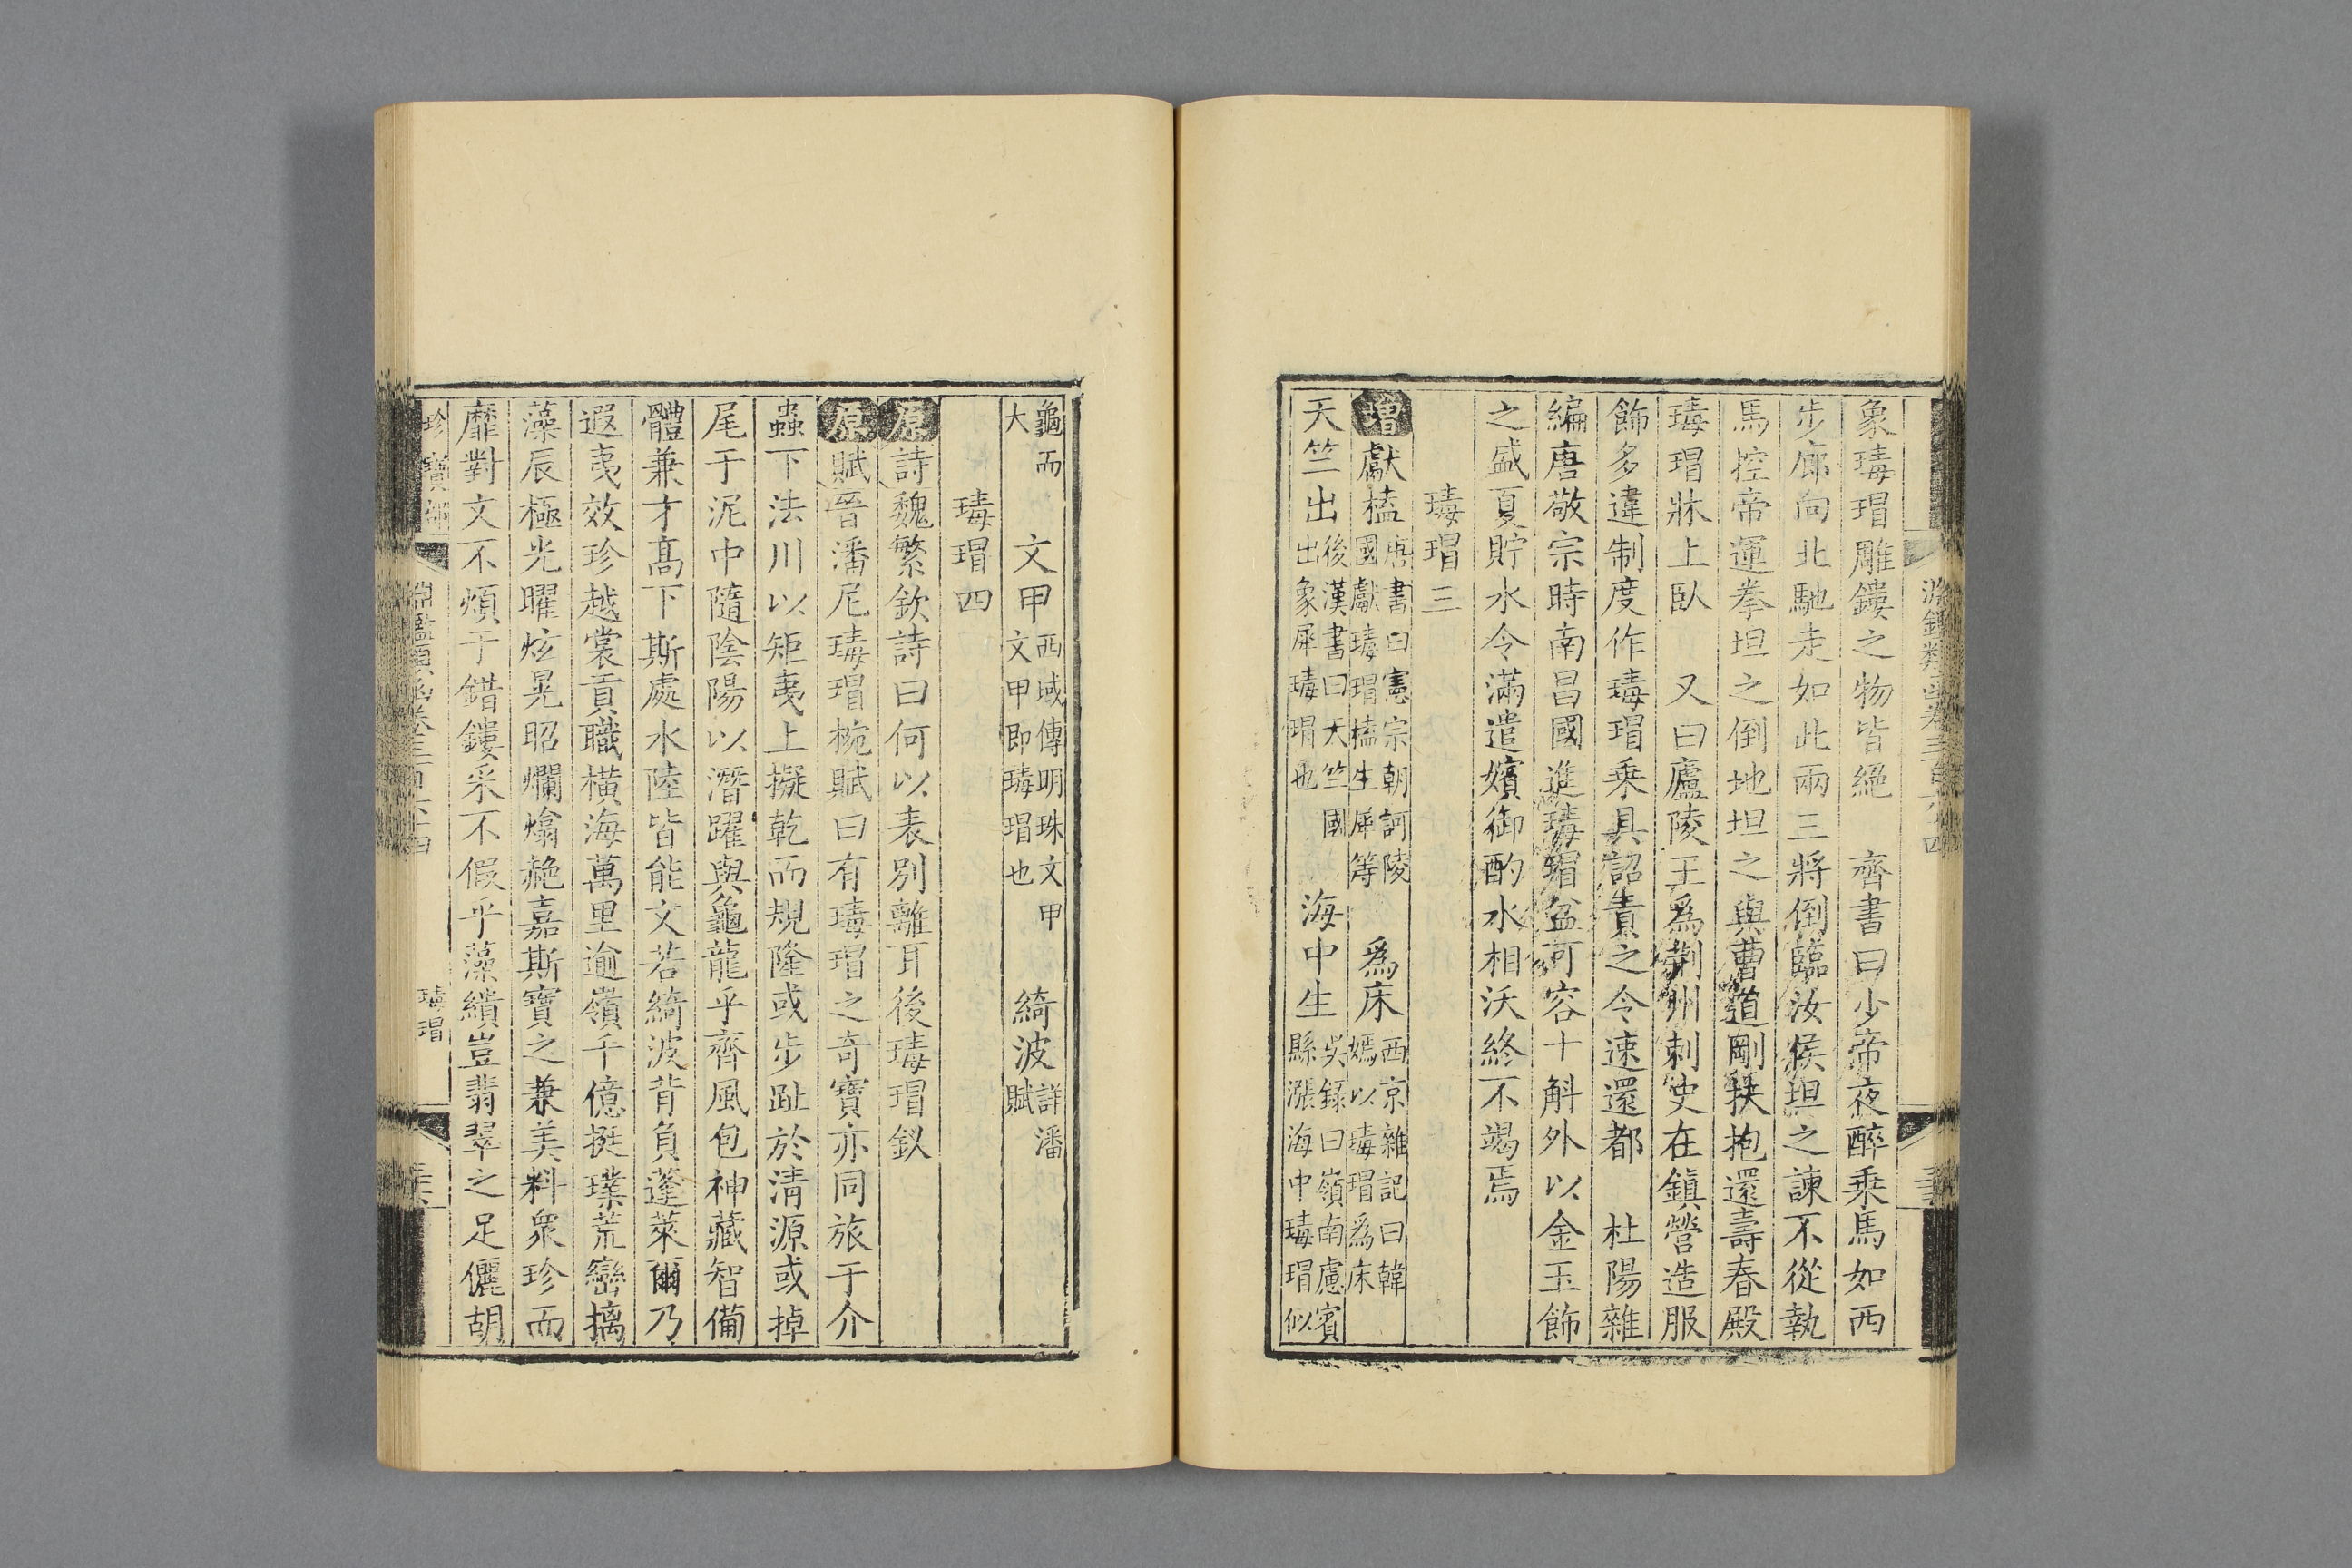 象瑇瑁雕鏤之物皆絕　齊書曰少帝夜醉乘馬如西
步廊向北馳走如此兩三將倒臨汝侯坦之諫不從執
馬控帝運拳坦之倒地坦之與曹道剛扶抱還壽春殿
瑇瑁牀上臥　又曰廬陵王爲荆州刺史在鎮營造服
飾多違制度作瑇瑁乘具詔責之令速還都　杜陽雜
編唐敬宗時南昌國進瑇瑁盆可容十斛外以金玉飾
之盛夏貯水令滿遣嬪御酌水相沃終不竭焉
瑇瑁三
增獻榼唐書曰憲宗朝訶陵國獻瑇瑁榼生犀等　爲床西京雜記曰韓嫣以瑇瑁爲床
天竺出後漢書曰天竺國出象犀瑇瑁也　海中生吳録曰嶺南慮賓縣漲海中瑇瑁似
龜而大　文甲西域傳明珠文甲文甲即瑇瑁也　綺波詳潘賦
瑇瑁四
原詩魏繁欽詩曰何以表別離耳後瑇瑁釵
原賦晉潘尼瑇瑁椀賦曰有瑇瑁之奇寶亦同旅于介
蟲下法川以矩夷上擬乾而規隆或步趾於清源或掉
尾于泥中隨陰陽以潛躍與龜龍乎齊風包神藏智備
體兼才高下斯處水陸皆能文若綺波背負蓬萊爾乃
遐夷效珍越裳貢職橫海萬里逾嶺千億挺璞荒巒摛
藻辰極光曜炫晃昭爛熻赩嘉斯寶之兼美料衆珍而
靡對文不煩于錯鏤采不假乎藻繢豈翡翠之足儷胡
珍寶部
淵鑑類函卷三百六十四
瑇瑁